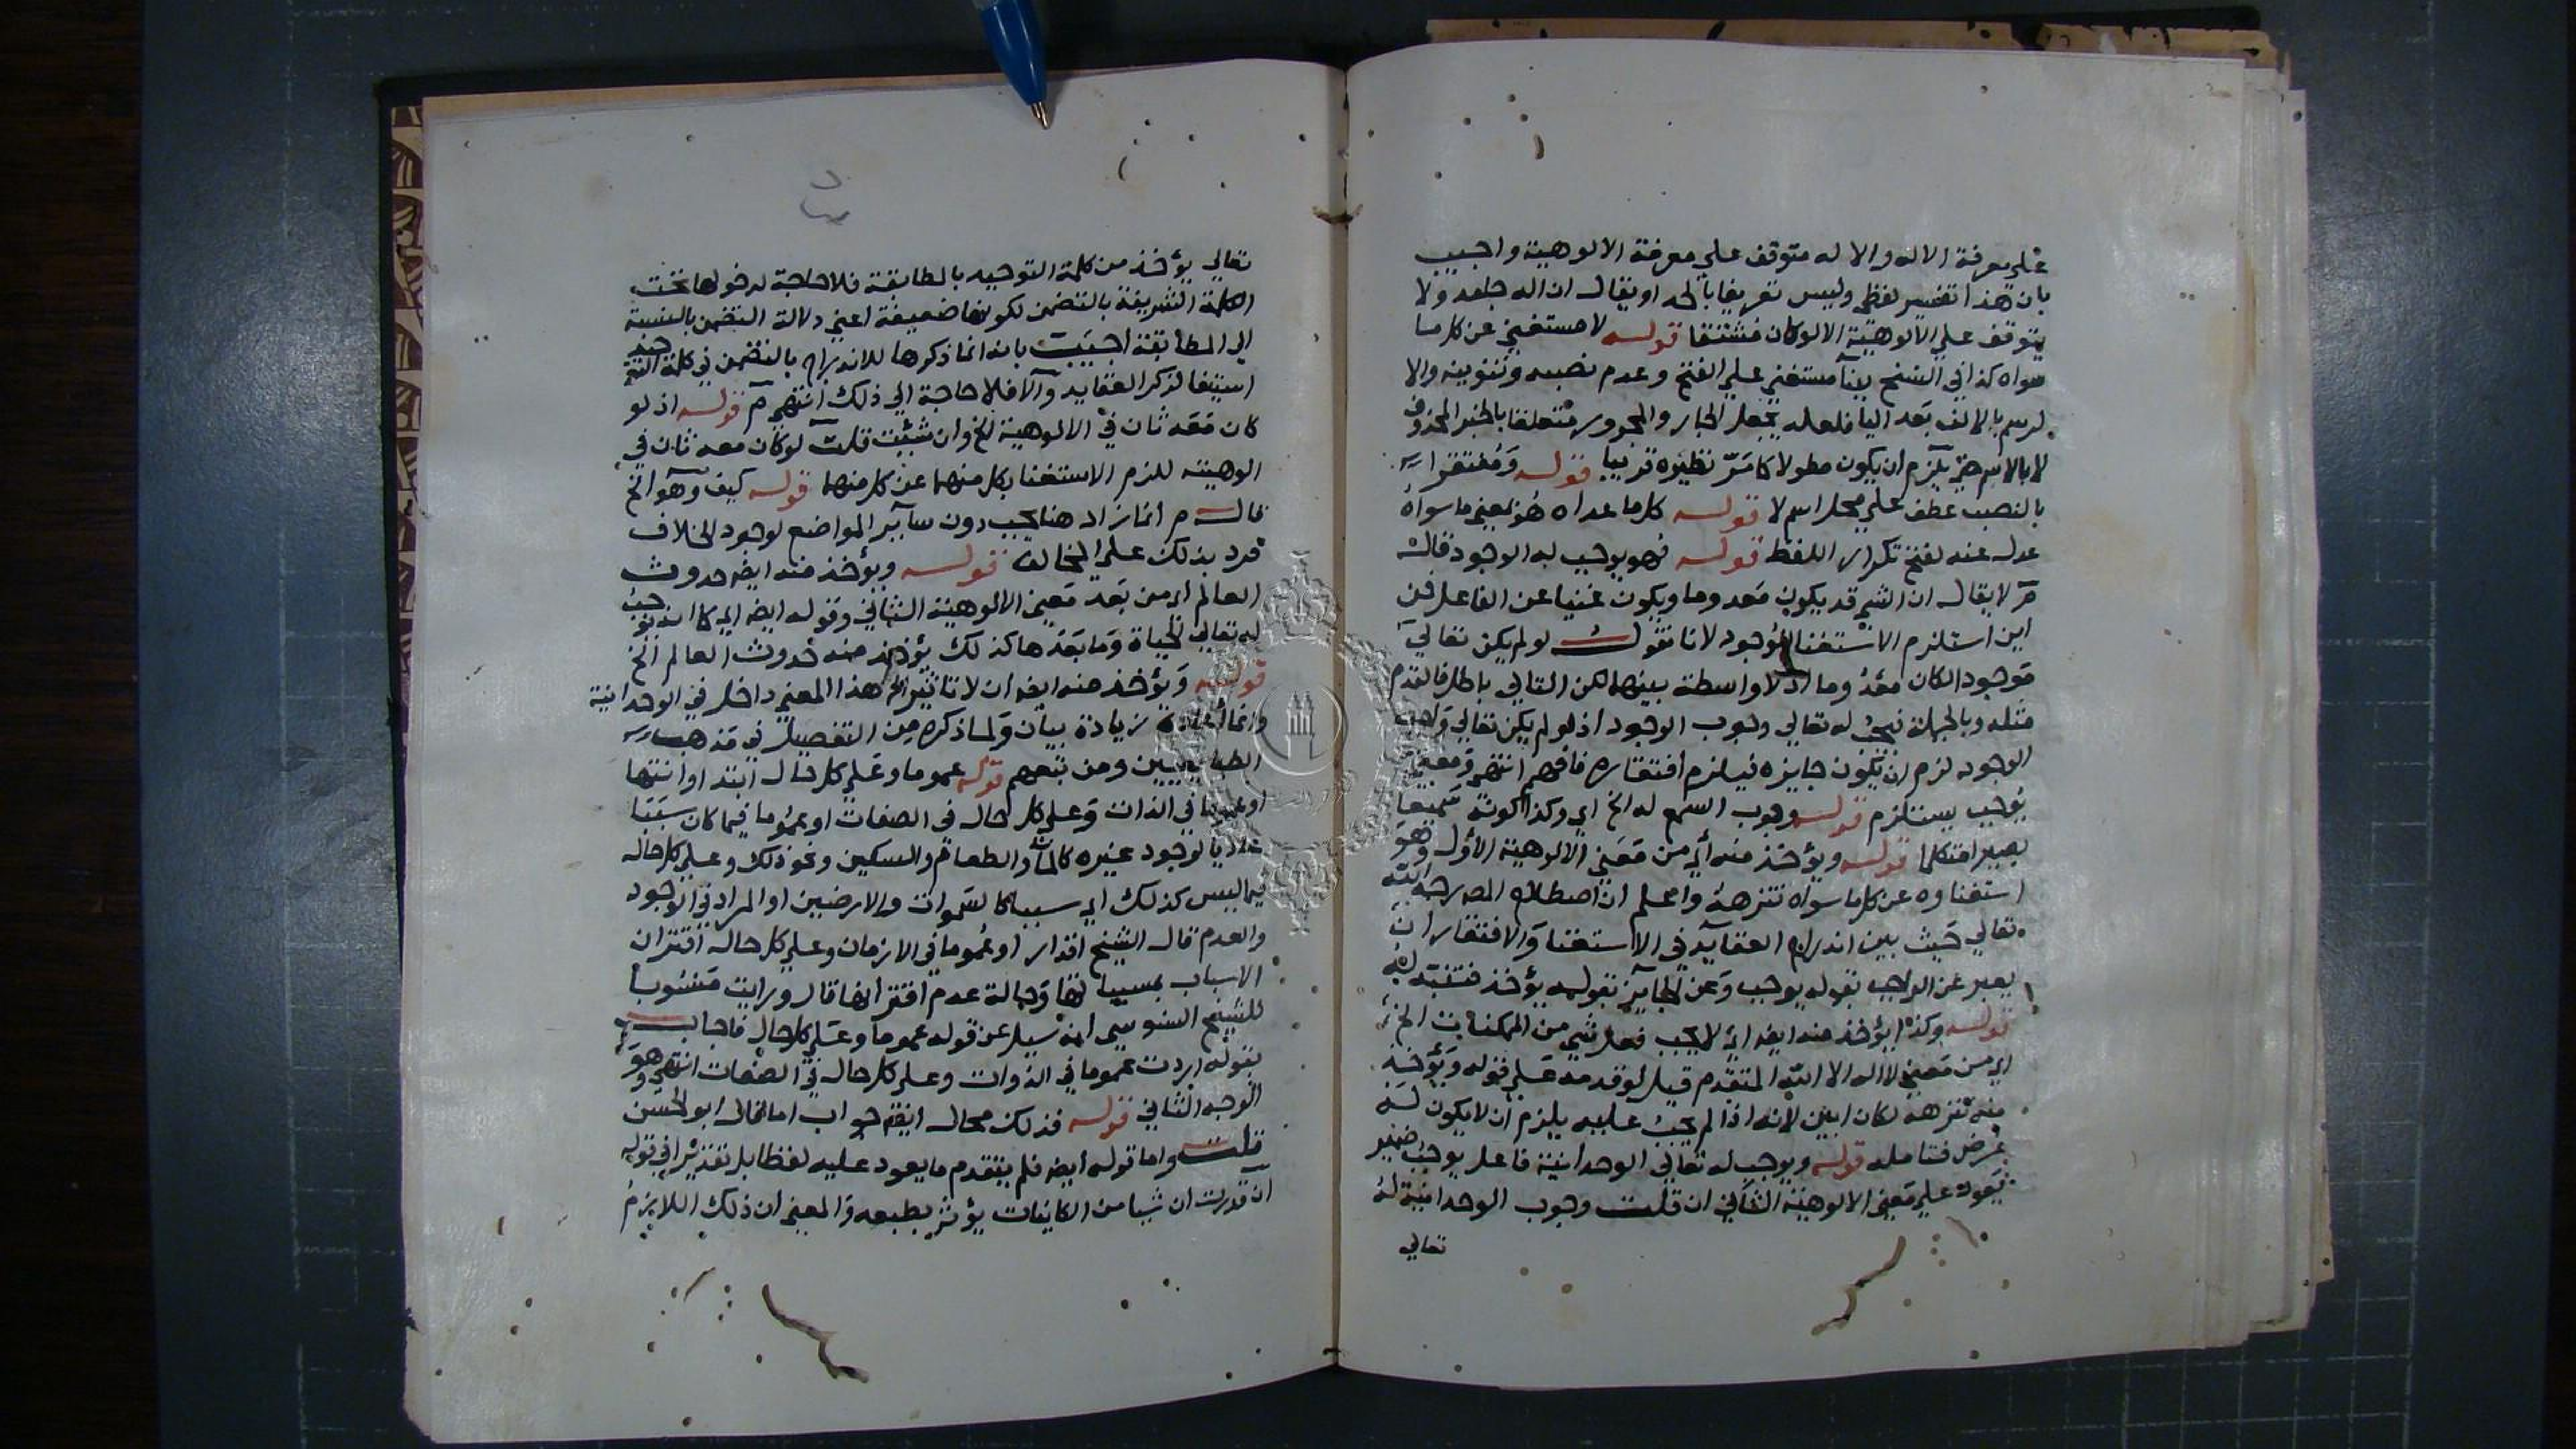 علي معرفة الاله والاله متوقف علي معرفة الالوهية واجيب
بان هذا تفسير لفظي وليس تعريفا بالحد او يقال ان اله جامد ولا
يتوقف علي الالوهية الا لو كان مشتقا قوله لا مستغني عن كل ما
سواه كذا في النسخ بينا مستغني علي الفتح وعدم نصبه وتنوينه والا
لرسم بالالف بعد اليا فلعله يجعل الجار والمجرور متعلقا بالخبر المحذوف
لا بالاسم حتي يلزم ان يكون مطولا كما مر نظيره قريبا قوله ومفتقرا
بالنصب عطف علي محل اسم لا قوله كل ما عداه هو بمعني ما سواه
عدل عنه لفتح تكرار اللفظ قوله فهو يوجب له الوجود قال
م لا يقال ان الشي قد يكون معدوما ويكون غنيا عن الفاعل فمن
اين استلزم الاستغنا الوجود لانا نقول لو لم يكن تعالي
موجودا لكان معدوما اذ لا واسطة بينهما لكن التالي باطل فالمقدم
مثله وبالجملة يجب له تعالي وجوب الوجود اذ لو لم يكن تعالي واجب
الوجود لزم ان يكون جايزه فيلزم افتقاره فافهم انتهي ومعني
يوجب يستلزم قوله وجوب السمع له الخ اي وكذا كونه سميعا
بصيرا متكلما قوله ويؤخذ منه أي من معني الالوهية الاول وهو
استغناوه عن كل ما سواه تنزهه واعلم ان اصطلاح المص رحمه الله
تعالي حيث بين اندراج العقايد في الاستغنا والافتقار ان
يعبر عن الواجب بقوله يوجب وعن الجايز بقوله يؤخذ فتنبه له
قوله وكذا يؤخذ منه ايضا انه لا يجب فعل شي من الممكنات الخ
اي من معني لا اله الا الله المتقدم قيل لو قدمه علي قوله ويؤخذ
منه تنزهه لكان ابين لانه اذا لم يجب عليه يلزم ان لا يكون له
غرض فتامله قوله ويوجب له تعالي الوحدانية فاعل يوجب ضمير
يعود علي معني الالوهية الثاني ان قلت وجوب الوحدانية له
تعالي
تعالي يؤخذ من كلمة التوحيد بالمطابقة فلا حاجة لدخولها تحت
الكلمة الشريفة بالتضمن لكونها ضعيفة اعني دلالة التضمن بالنسبة
الي المطابقة اجيبت بانه انما ذكرها للاندراج بالتضمن في كلمة التوحيد
استيفا لذكر العقايد والا فلا حاجة الي ذلك انتهي م قوله اذ لو
كان معه ثان في الالوهية الخ وان شئت قلت لو كان معه ثان في
الوهيته للزم الاستغنا بكل منهما عن كل منهما قوله كيف وهو الخ
قال م انما زاد هنا يجب دون ساير المواضع لوجود الخلاف
فرد بذلك علي المخالف قوله ويؤخذ منه ايضا حدوث
العالم اي من بعد معني الالوهية الثاني وقوله ايضا اي كما انه يوجب
له تعالي الحياة وما بعدها كذلك يؤخذ منه حدوث العالم الخ
قوله ويؤخذ منه ايضا ان لا تاثير الخ هذا المعني داخل في الوحدانية
وانما اعاده زيادة بيان ولما ذكره من التفصيل في مذهب
الطبايعيين ومن تبعهم قوله عموما وعلي كل حال ابتدا او انتها
او عموما في الذات وعلي كل حال في الصفات او عموما فيما كان سببا
عاديا لوجود غيره كالماء والطعام والسكين ونحو ذلك وعلي كل حال
فيما ليس كذلك اي سببا كالسموات والارضين او المراد في الوجود
والعدم قال الشيخ اقدار او عموما في الازمان وعلي كل حال اقتران
الاسباب بمسبباتها وحالة عدم اقترانها قال ورايت منسوبا
للشيخ السنوسي انه سيل عن قوله عموما وعلي كل حال فاجاب
بقوله اردت عموما في الذوات وعلي كل حال في الصفات انتهي وهو
الوجه الثاني قوله فذلك محال ايضا جواب اما قال ابو الحسن
قلت واما قوله ايضا فلم يتقدم ما يعود عليه لفظا بل تقديرا في قوله
ان قدرت ان شيا من الكاينات يؤثر بطبعه والمعني ان ذلك اللازم